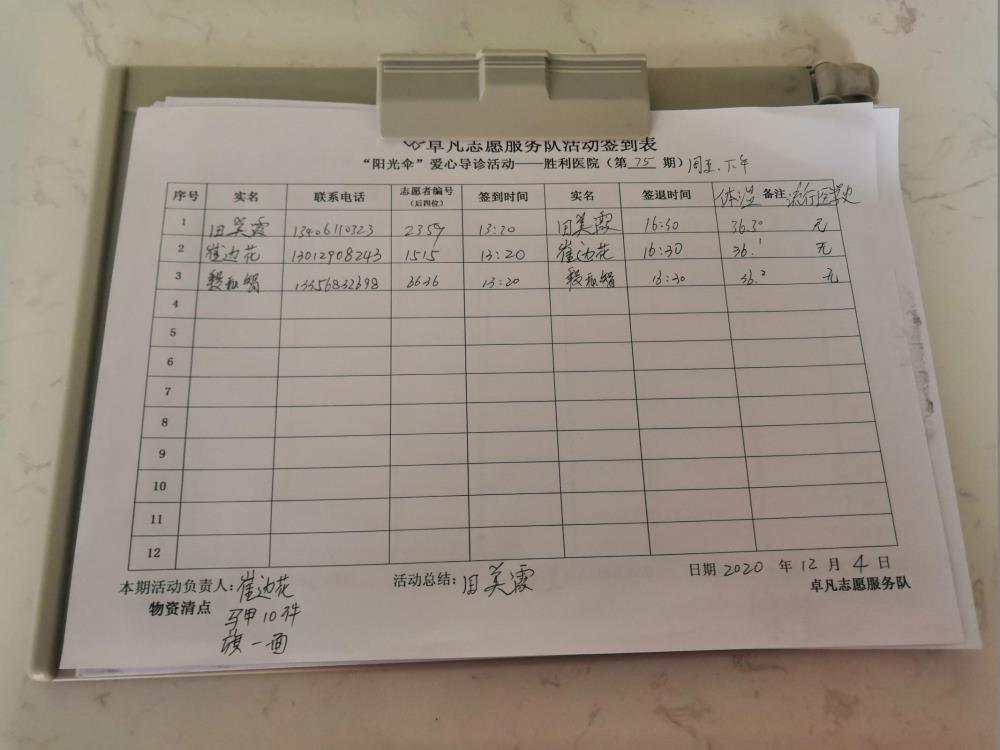 卓凡志愿服务队活动签到表
“阳光伞”爱心导诊活动——胜利医院（第 75 期）周五.下午
序号 实名 联系电话 志愿者编号（后四位） 签到时间 实名 签退时间 体温 备注 流行病史
1 田美霞 13406110323 2359 13:20 田美霞 16:30 36.3° 无
2 崔边花 13012908243 1515 13:20 崔边花 16:30 36.1 无
3 13356832698 6636 13:20 16:30 36.2 无
4
5
6
7
8
9
10
11
12
本期活动负责人：崔边花 活动总结：田美霞 日期 2020 年 12 月 4 日
物资清点 卓凡志愿服务队
马甲10件
旗一面